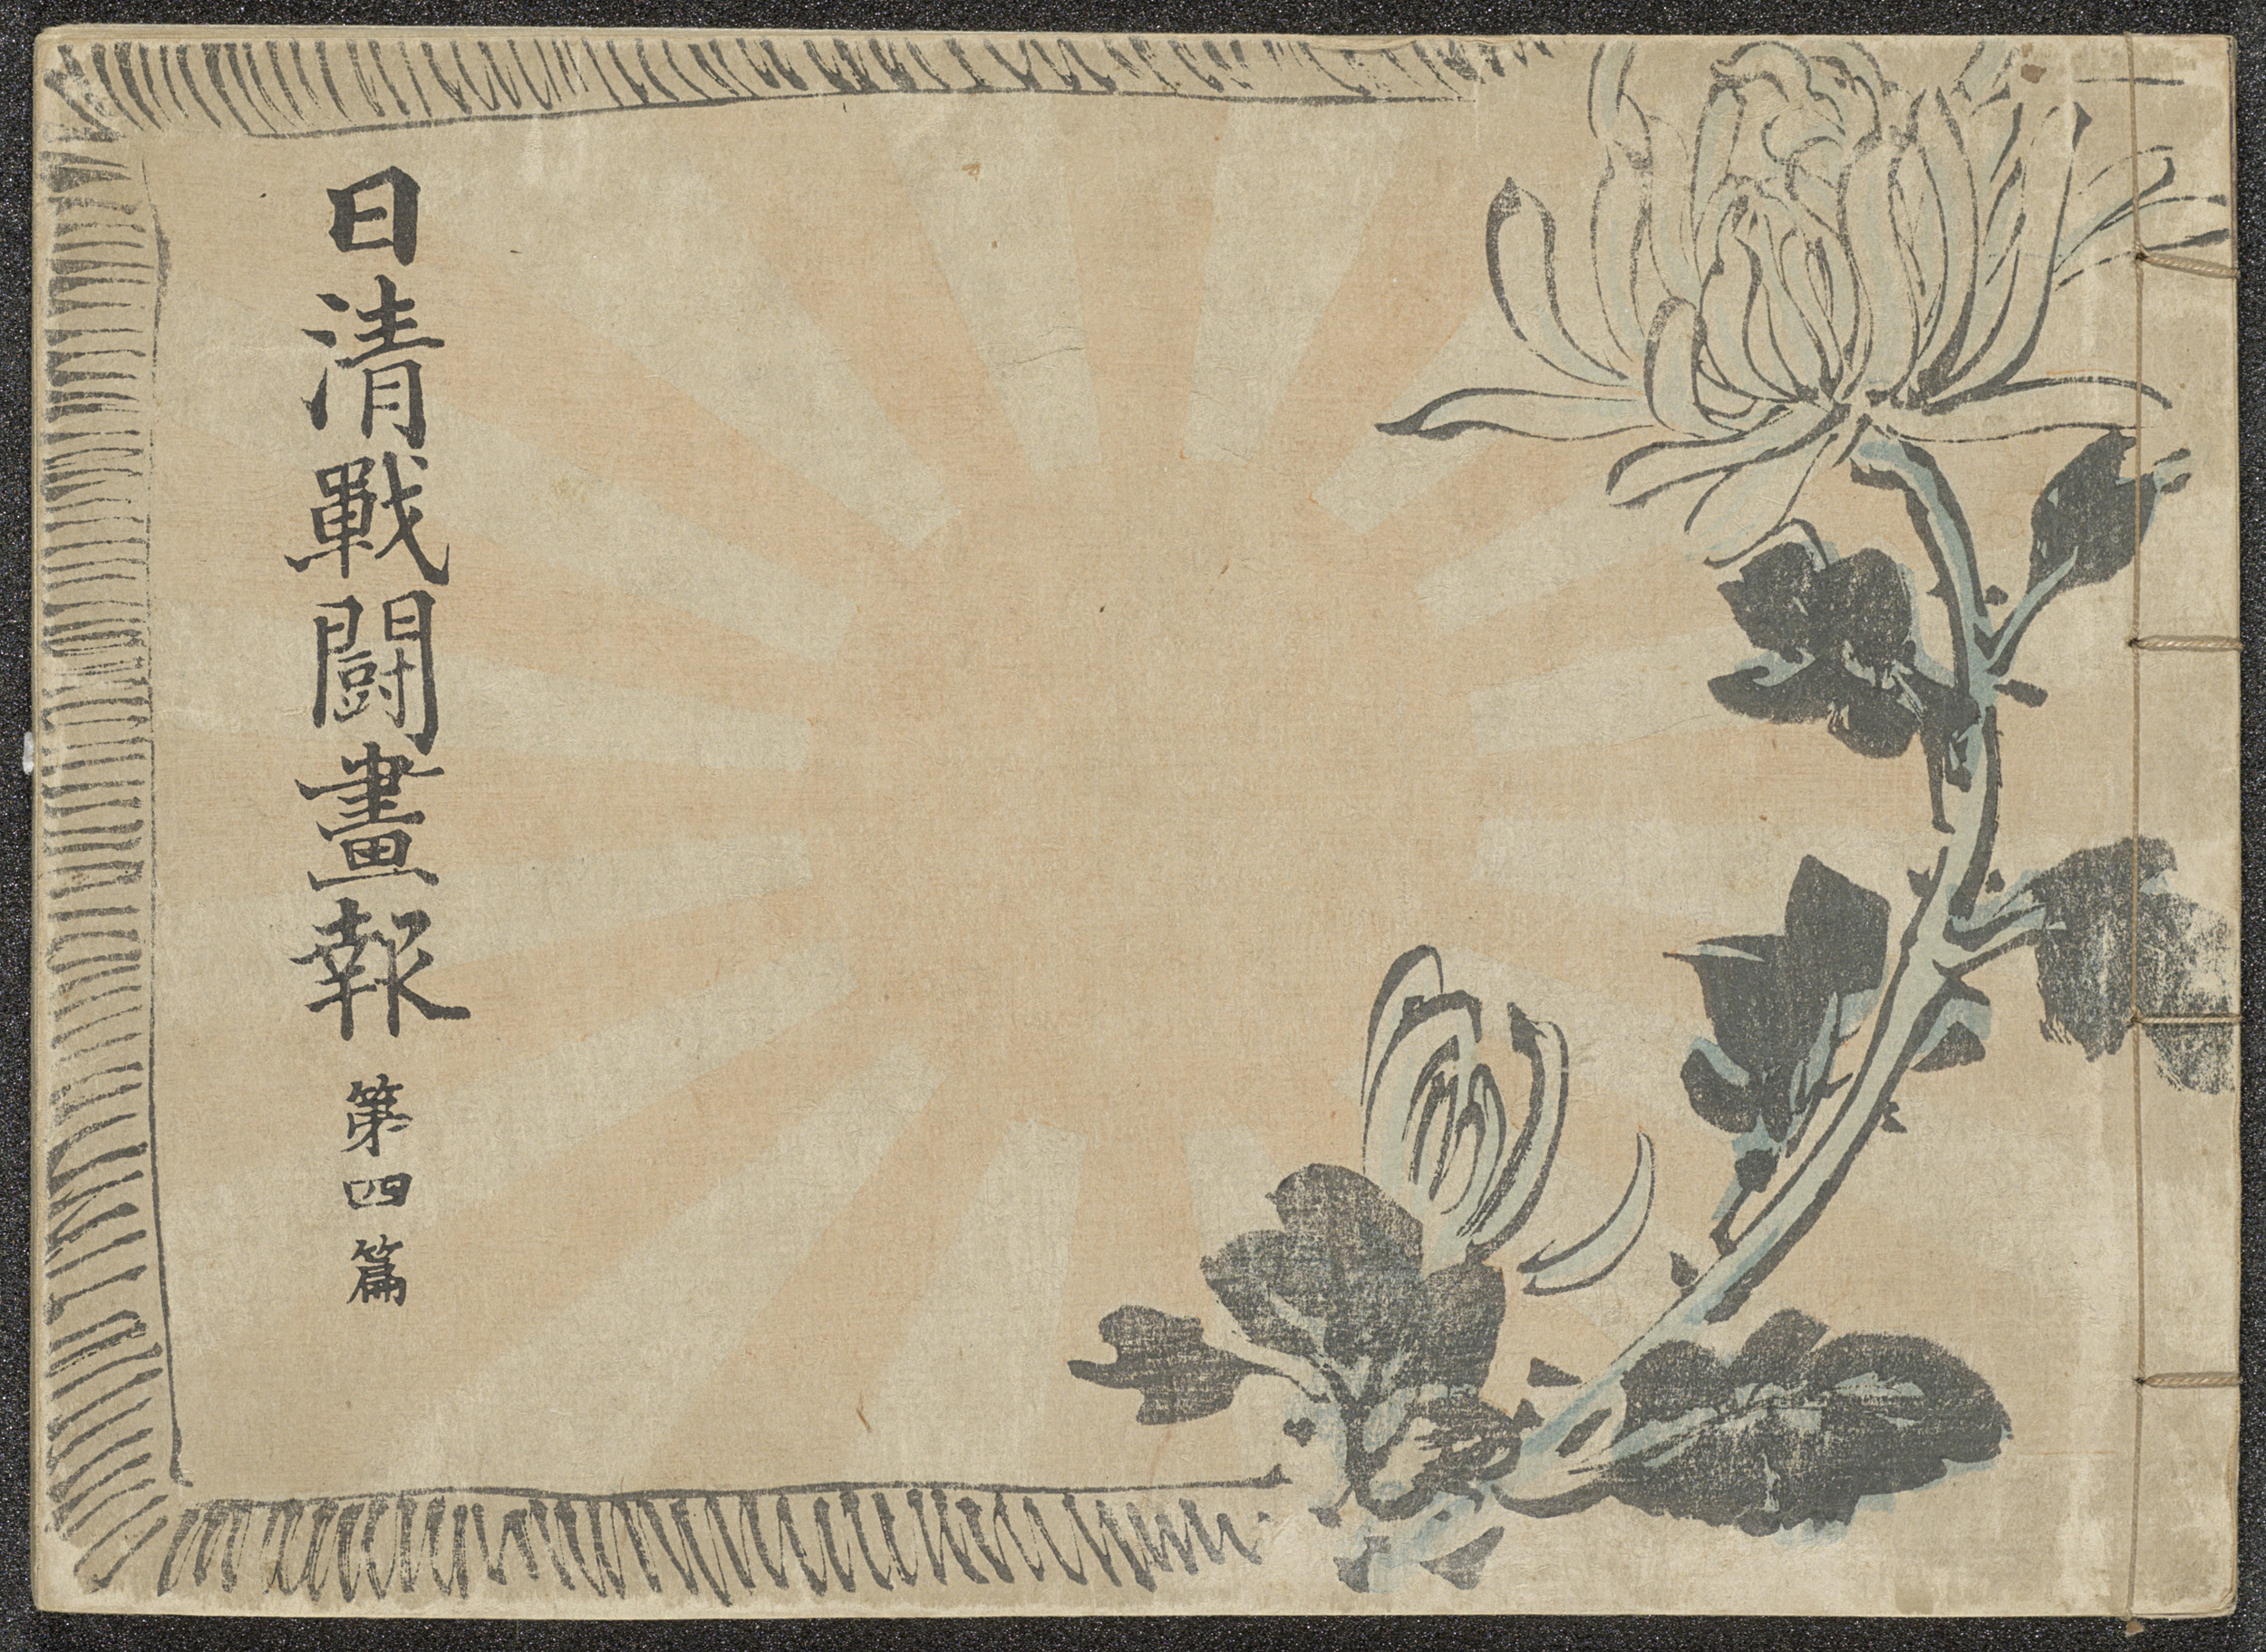 日清戰闘畫報 第四篇